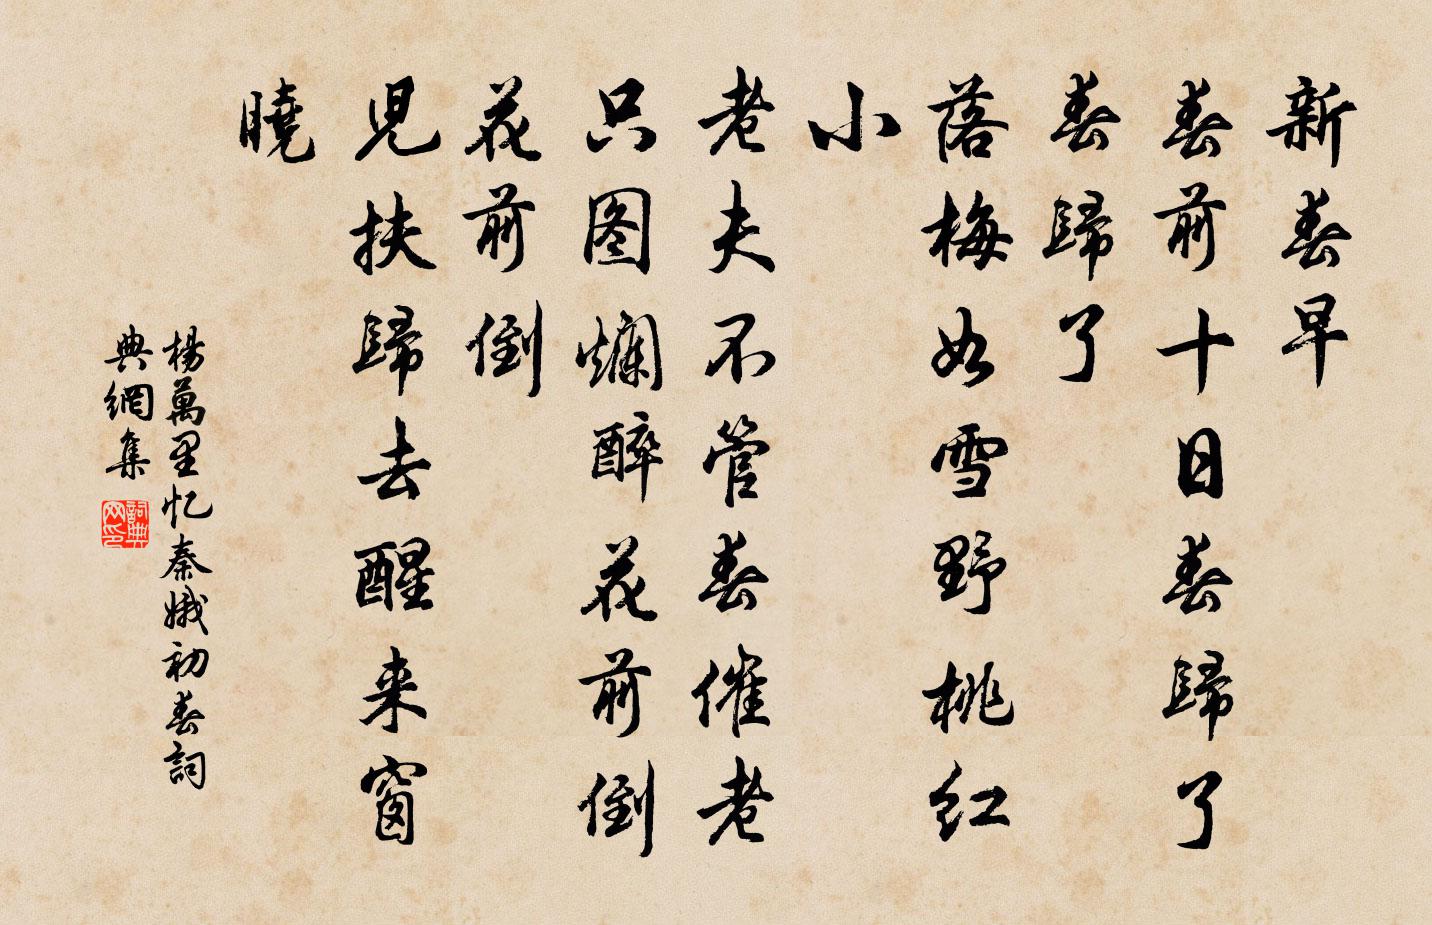 新春早
春前十日春歸了
春歸了
落梅如雪野桃红
小
老夫不管春催老
只图爛醉花前倒
花前倒
児扶歸去醒来窗
曉
楊萬里忆秦娥初春詞
典網集
詞典网印